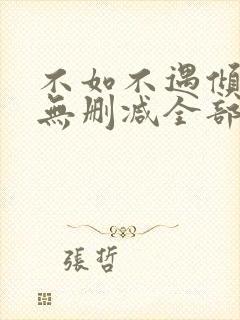 不如不遇傾
無刪減全部
張哲